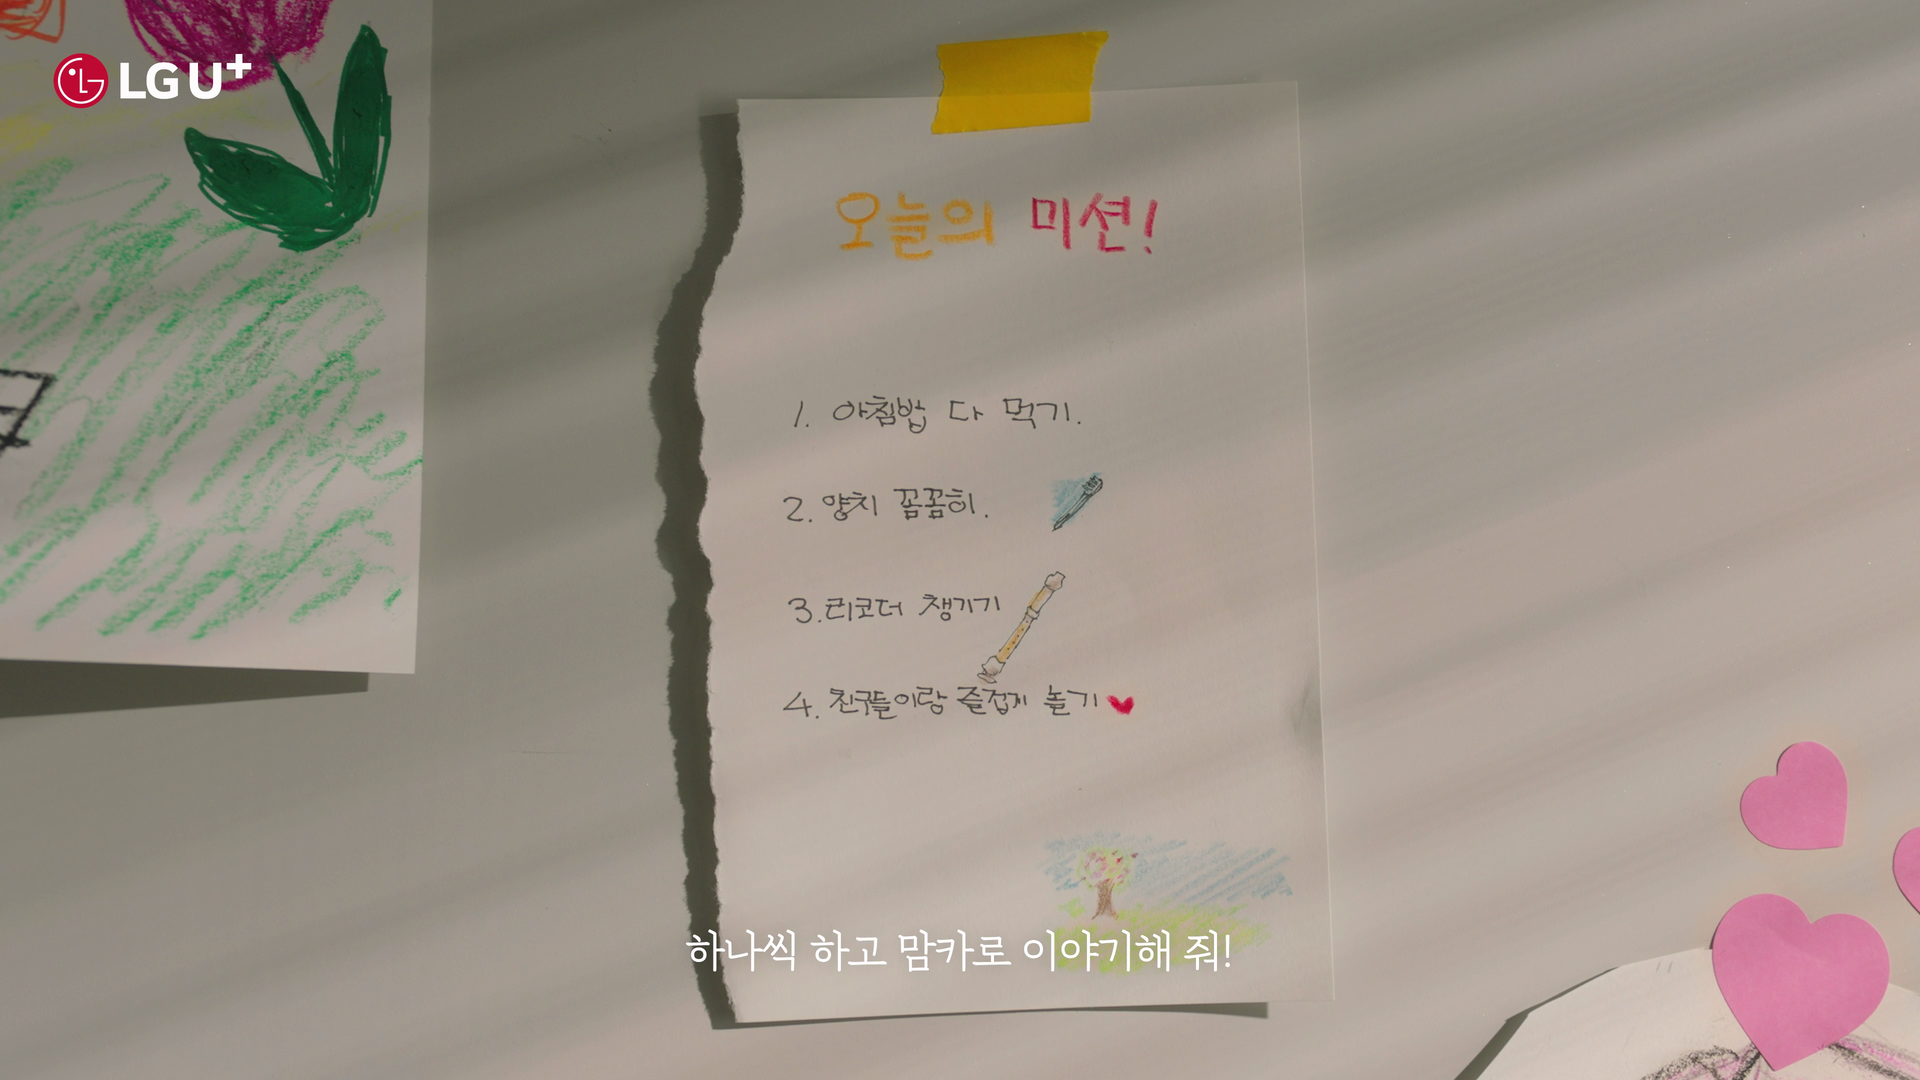 LG U+
오늘의 미션!
1. 아침밥 다 먹기.
2. 양치 꼼꼼히.
3. 리코더 챙기기
4. 친구들이랑 즐겁게 놀기
하나씩 하고 맘카로 이야기해 줘!